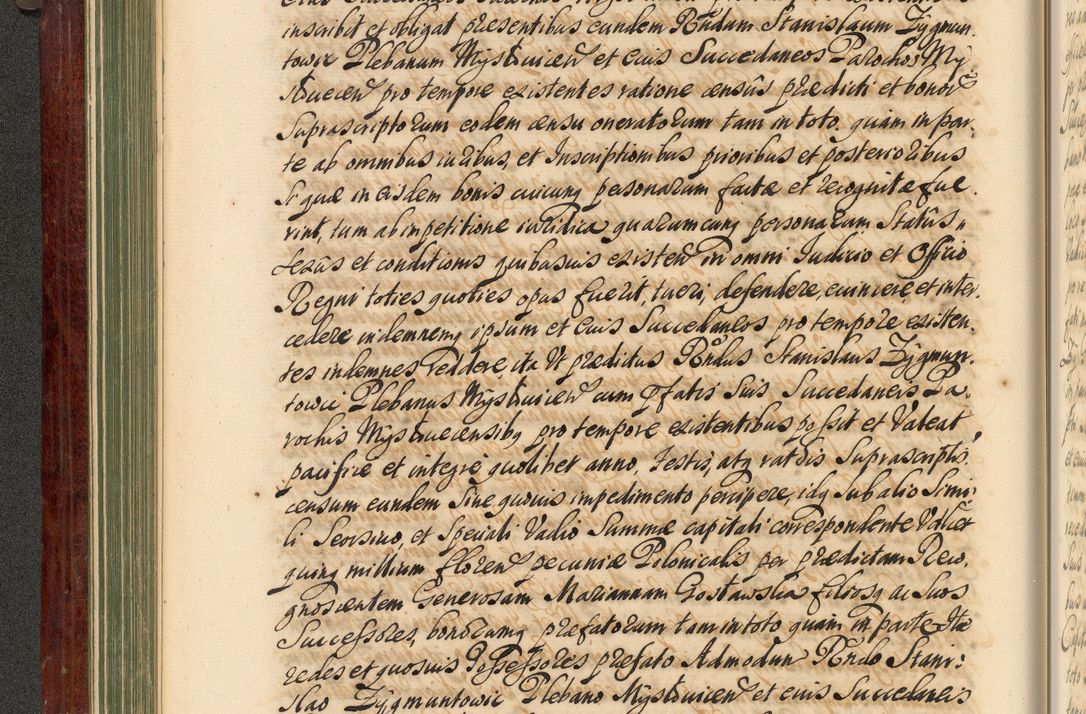 inscribit et obligat præsentibus eundem Rńdum Stanislaum Zygmun,
towic Plebanum Mysłowicen et eius Succedaneos Parochos My
słuecen pro tempore existentes ratione censûs prædicti et bonor
Suprascriptorum eodem censu oneratorum tam in toto quam in par,
te ab omnibus iuribus, et Inscriptionibus prioribus et posterioribus
Si quæ in eisdem bonis cuicunq personarum factæ et recognitæ fue,
rint, tum ab impetitione iuridica quarumcunq personarum Statûs,
sexûs et conditionis quibusuis existen in omni Iudicio et Officio
Regni toties quoties opus fuerit, tueri, defendere, euincere, et inter,
cedere indemnemq ipsum et eius Succedaneos pro tempore existen,
tes indemnes reddere ita Vt prædictus Rńdus Stanislaus Zygmun,
towic Plebanus Mysłuicen cum Pfatis Suis Succedaneis Pa,
rochis Mysłuecensibq pro tempore existentibus possit et Valeat
pacifice et integrè quolibet anno, Festis, atq ratis Suprascriptis,
censum eundem Sine quouis impedimento percipere, idq Sub alio Simi,
li Seorsiuo, et Speciali Vadio Summæ capitali correspondente Vdlicet
quinq millium floren pecuniæ Polonicalis per prædictam Reco,
gnoscentem Generosam Mariannam Gostawska filiosq ac Suos
Successores, bonorumq præfatorum tam in toto quam in parte Hæ
redes et quosuis Possessores præfato Admodum Rńdo Stani,
slao Zygmuntowic Plebano Mysłuicen et eius Succedaneis